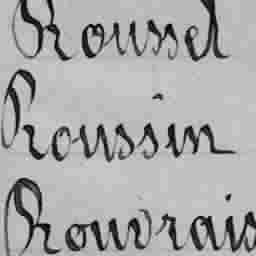 Roussel
Roussin
Rouvrais